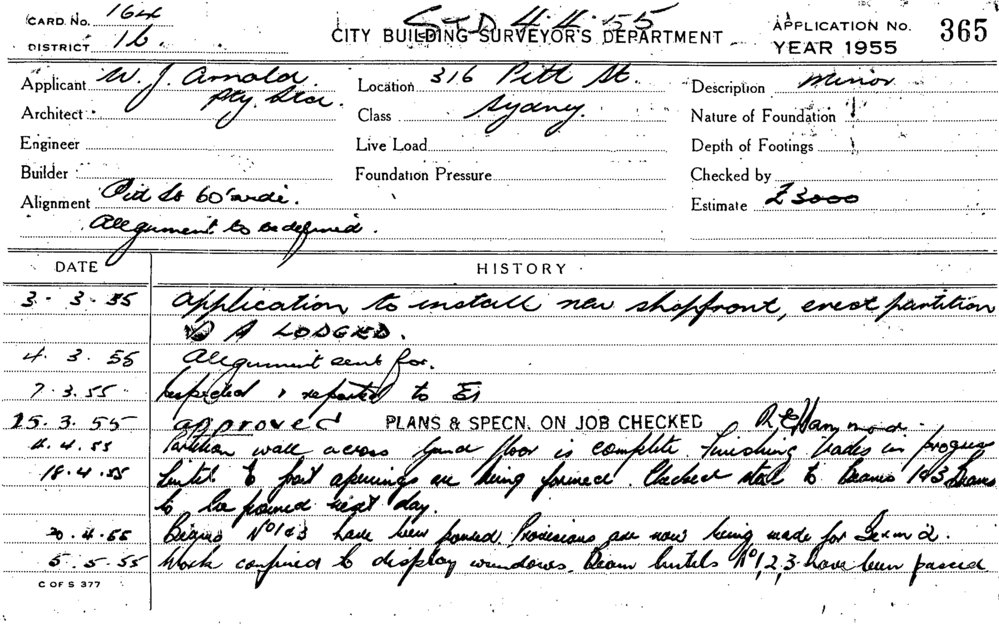 CARD No. 164
STD 4.4.55
APPLICATION No. 365
DISTRICT 16.
CITY BUILDING SURVEYOR'S DEPARTMENT
YEAR 1955
Applicant W. J. Arnold
Location 316 Pitt St.
Description Minor
Pty.
Architect
Class Sydney.
Nature of Foundation
Engineer
Live Load
Depth of Footings
Builder
Foundation Pressure
Checked by
Alignment Pitt St 60' wide.
Estimate £3000
Allignment to be defined.
DATE HISTORY
3-3-55 Application to install new shopfront, erect partition
A LODGED.
4.3.55 Allignment sent for.
7.3.55 Inspected & reported to
15.3.55 approved PLANS & SPECN. ON JOB CHECKED
4.4.55 Partition wall across Grnd floor is complete Finishing trades in progress
18.4.55 Lintel to front openings are being formed. Checked steel to Beams 1&3 Beams
to be poured next day.
20.4.55 Beams No 1&3 have been poured Provisions are now being made for
5.5.55 Work confined to display windows. Beam lintels No 1,2,3 have been passed
C OF S 377